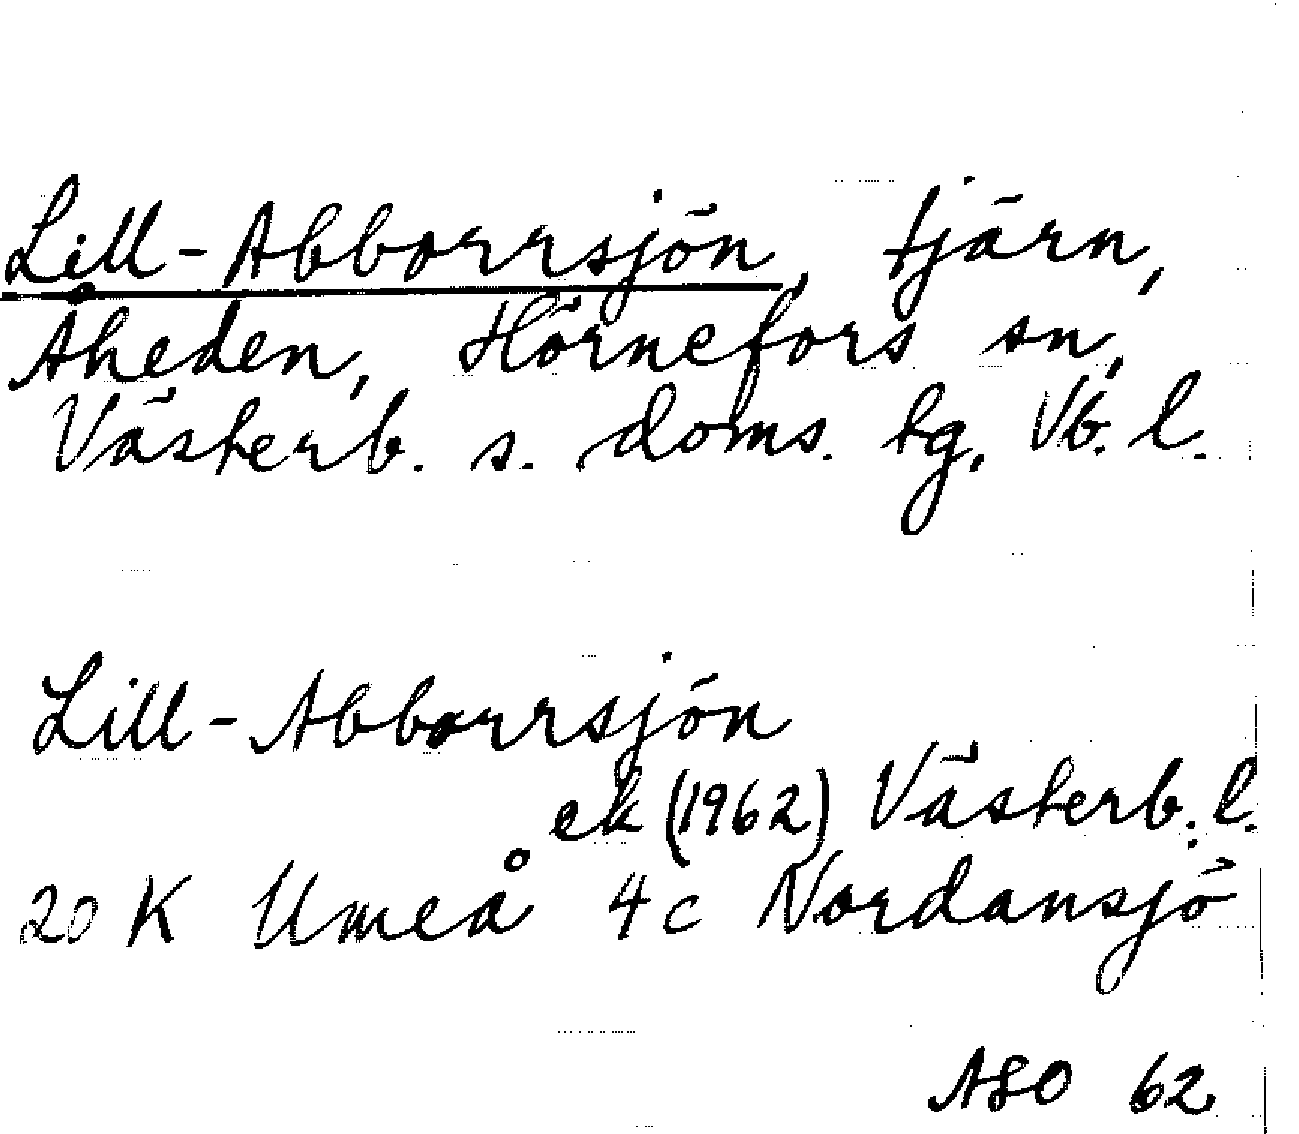 Lill-Abborrsjön, tjärn,
Åheden, Hörnefors sn,
Västerb. s. doms. tg, Vb. l.
Lill-Abborrsjön
ek (1962) Västerb. l.
20 K Umeå 4c Nordansjö
ASO 62